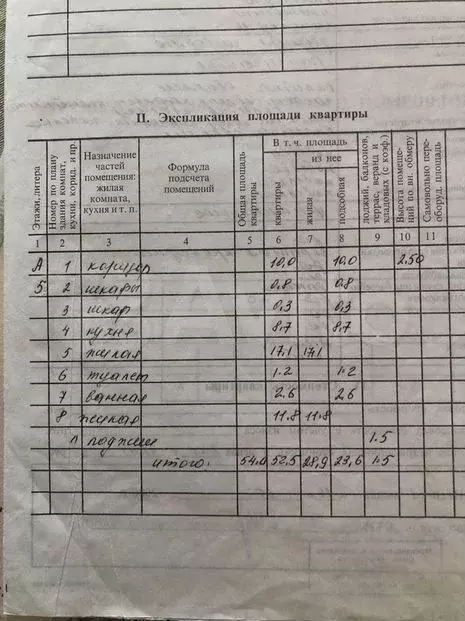 II. Экспликация площади квартиры
Этажи, литера
Номер по плану здания комнат, кухни, корид. и пр.
Назначение частей помещения: жилая комната, кухня и т. п.
Формула подсчета помещений
Общая площадь квартиры
В т. ч. площадь
квартиры
из нее
жилая
подсобная
лоджий, балконов, террас, веранд и кладовых (с коэф)
Высота помещений по вн. обмеру
Самовольно переоборуд. площадь
1 2 3 4 5 6 7 8 9 10 11
А 1 коридор 10,0 10,0 2.50
5 2 шкафы 0,8 0.8
3 шкаф 0,3 0.3
4 кухня 8,7 8,7
5 жилая 17,1 17,1
6 туалет 1.2 1.2
7 ванная 2.6 2.6
8 жилая 11.8 11.8
л лоджия 1.5
итого. 54.0 52,5 28,9 23,6 1.5